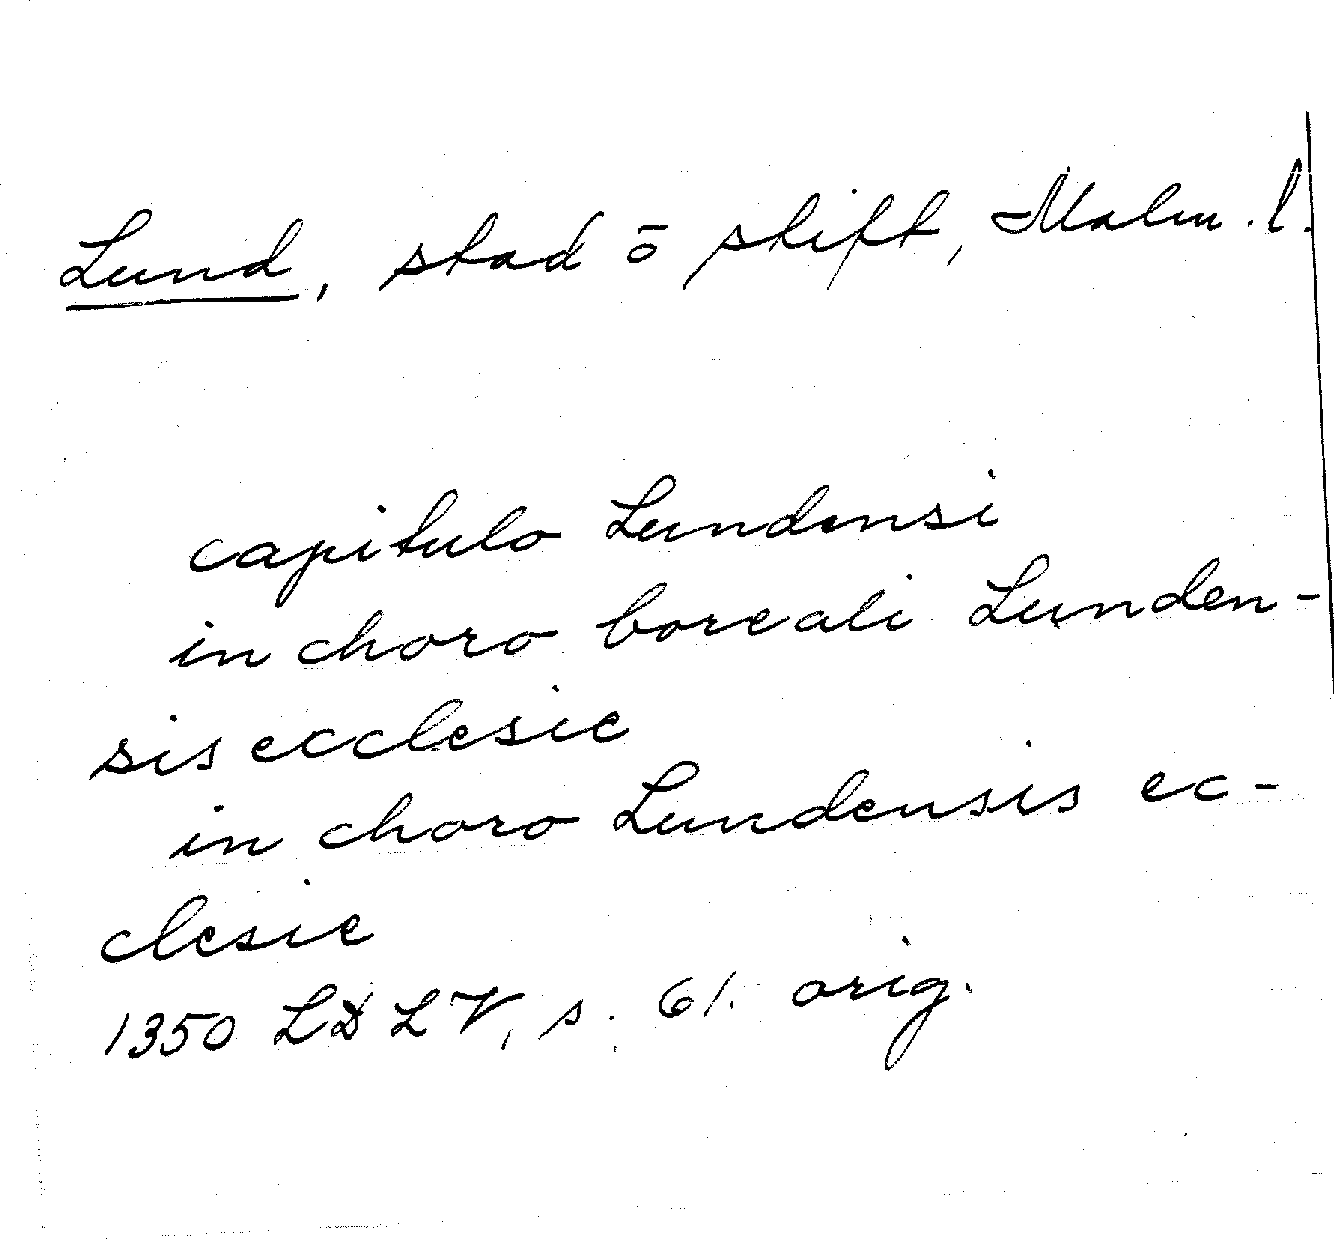 Lund, stad ō stift, Malm. l.
capitulo Lundensi
in choro boreali Lunden-
sis ecclesie
in choro Lundensis ec-
clesie
1350 LDLV, s. 61. orig.